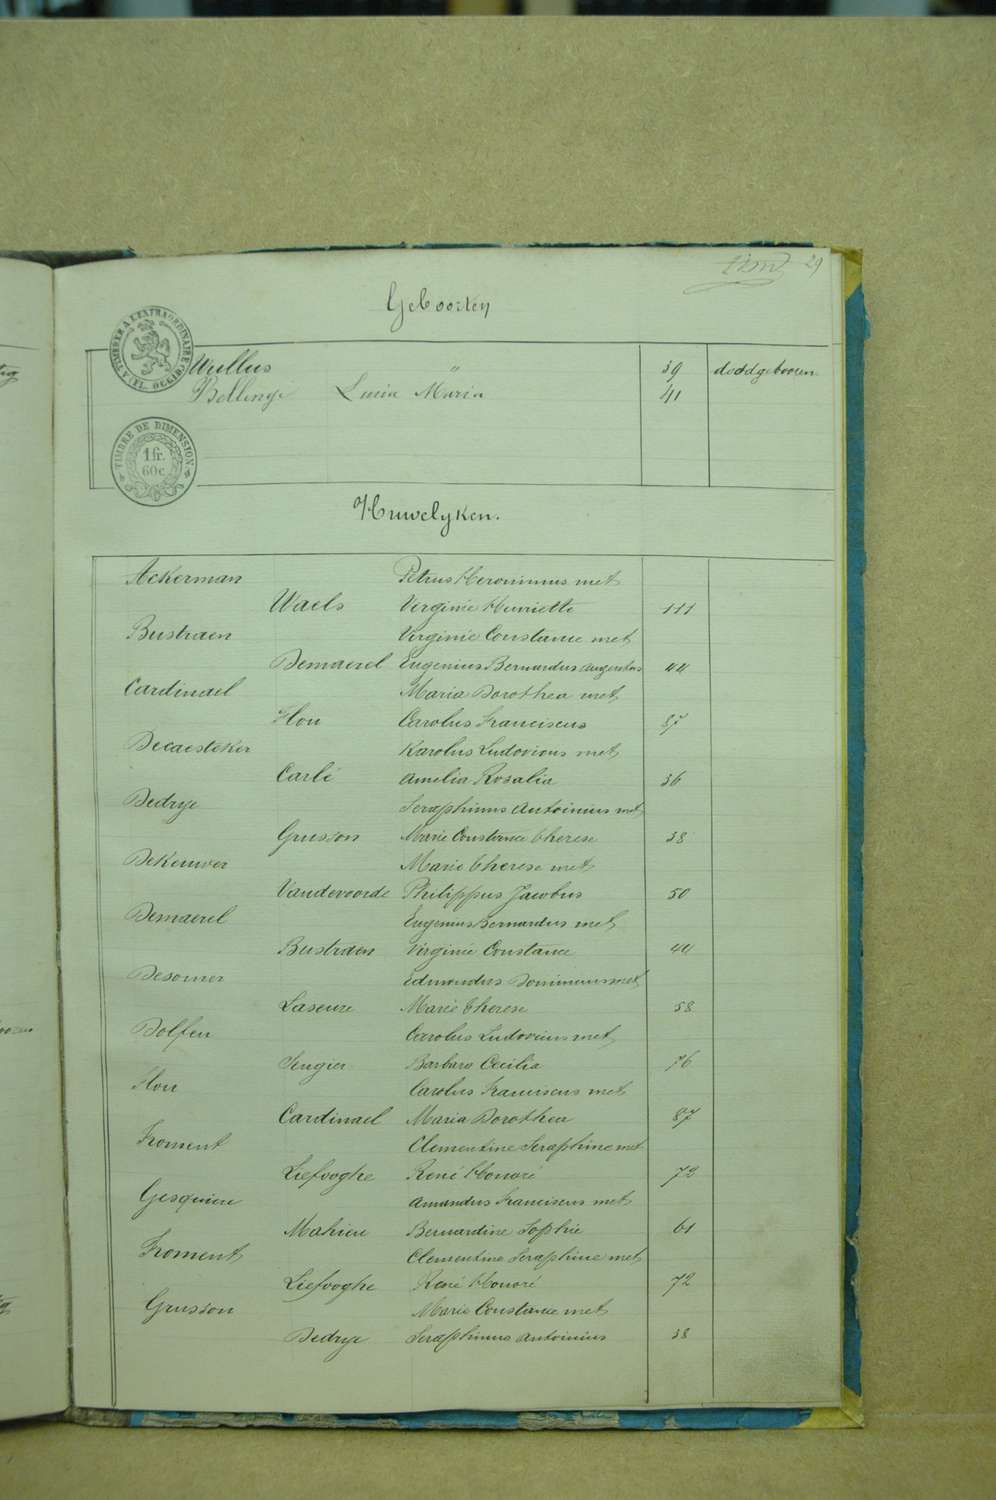 29
Geboorten
TIMBRE A L'EXTRAORDINAIRE
(FL. OCCID.)
Wullus " 39 doodgeboren
Bellengé Lucia Maria 41
TIMBRE DE DIMENSION
1 fr.
60 c.
Huwelyken.
Ackerman Petrus Hieronimus met
Waels Virginie Henriette 111
Bustraen Virginie Constance met
Demaerel Eugenius Bernardus 44
Cardinael Maria Dorothea met
Hou Carolus Franciscus 87
Decaesteker Karolus Ludovicus met
Carlé Amelia Rosalia 36
Dedrye Seraphinus Antoinius met
Grusson Marie Constance Therese 38
DeKeuwer Marie Therese met
Vandevoorde Philippus Jacobus 50
Demaerel Eugenius Bernardus met
Bustraen Virginie Constance 44
Desomer Edmondus met
Laseure Marie Therese 58
Dolfen Carolus Ludovicus met
Barbara Cecilia 76
Hou Carolus Franciscus met
Cardinael Maria Dorothea 87
Froment Clementine Seraphine met
Liefooghe René Honoré 72
Gesquiere Amandus Franciscus met
Mahieu Bernardine Sophie 61
Froment Clementine Seraphine met
Liefooghe René Honoré 72
Grusson Marie Constance met
Dedrye Seraphinus Antoinius 38